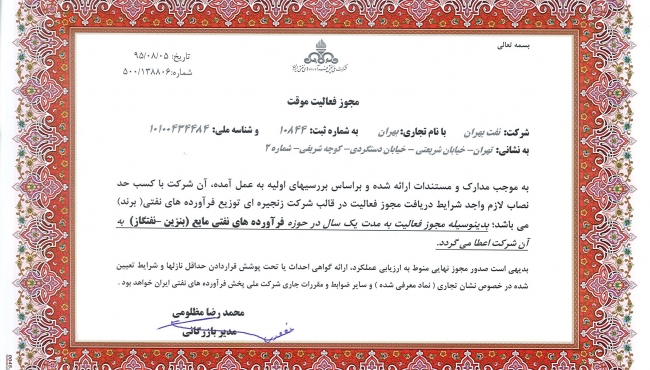 بسمه تعالی
تاریخ: ۹۵/۰۸/۰۵
شماره: ۵۰۰/۱۳۸۸۰۶
مجوز فعالیت موقت
شرکت: نفت بهران با نام تجاری: بهران به شماره ثبت: ۱۰۸۴۴ و شناسه ملی: ۱۰۱۰۰۴۳۴۴۸۴
به نشانی: تهران- خیابان شریعتی - خیابان دستگردی- کوچه شریفی- شماره ۲
به موجب مدارک و مستندات ارائه شده و براساس بررسیهای اولیه به عمل آمده، آن شرکت با کسب حد
نصاب لازم واجد شرایط دریافت مجوز فعالیت در قالب شرکت زنجیره ای توزیع فرآورده های نفتی( برند)
می باشد؛ بدینوسیله مجوز فعالیت به مدت یک سال در حوزه فرآورده های نفتی مایع (بنزین -نفتگاز) به
آن شرکت اعطا می گردد.
بدیهی است صدور مجوز نهایی منوط به ارزیابی عملکرد، ارائه گواهی احداث یا تحت پوشش قراردادن حداقل نازلها و شرایط تعیین
شده در خصوص نشان تجاری ( نماد معرفی شده ) و سایر ضوابط و مقررات جاری شرکت ملی پخش فرآورده های نفتی ایران خواهد بود .
محمد رضا مظلومی
مدیر بازرگانی